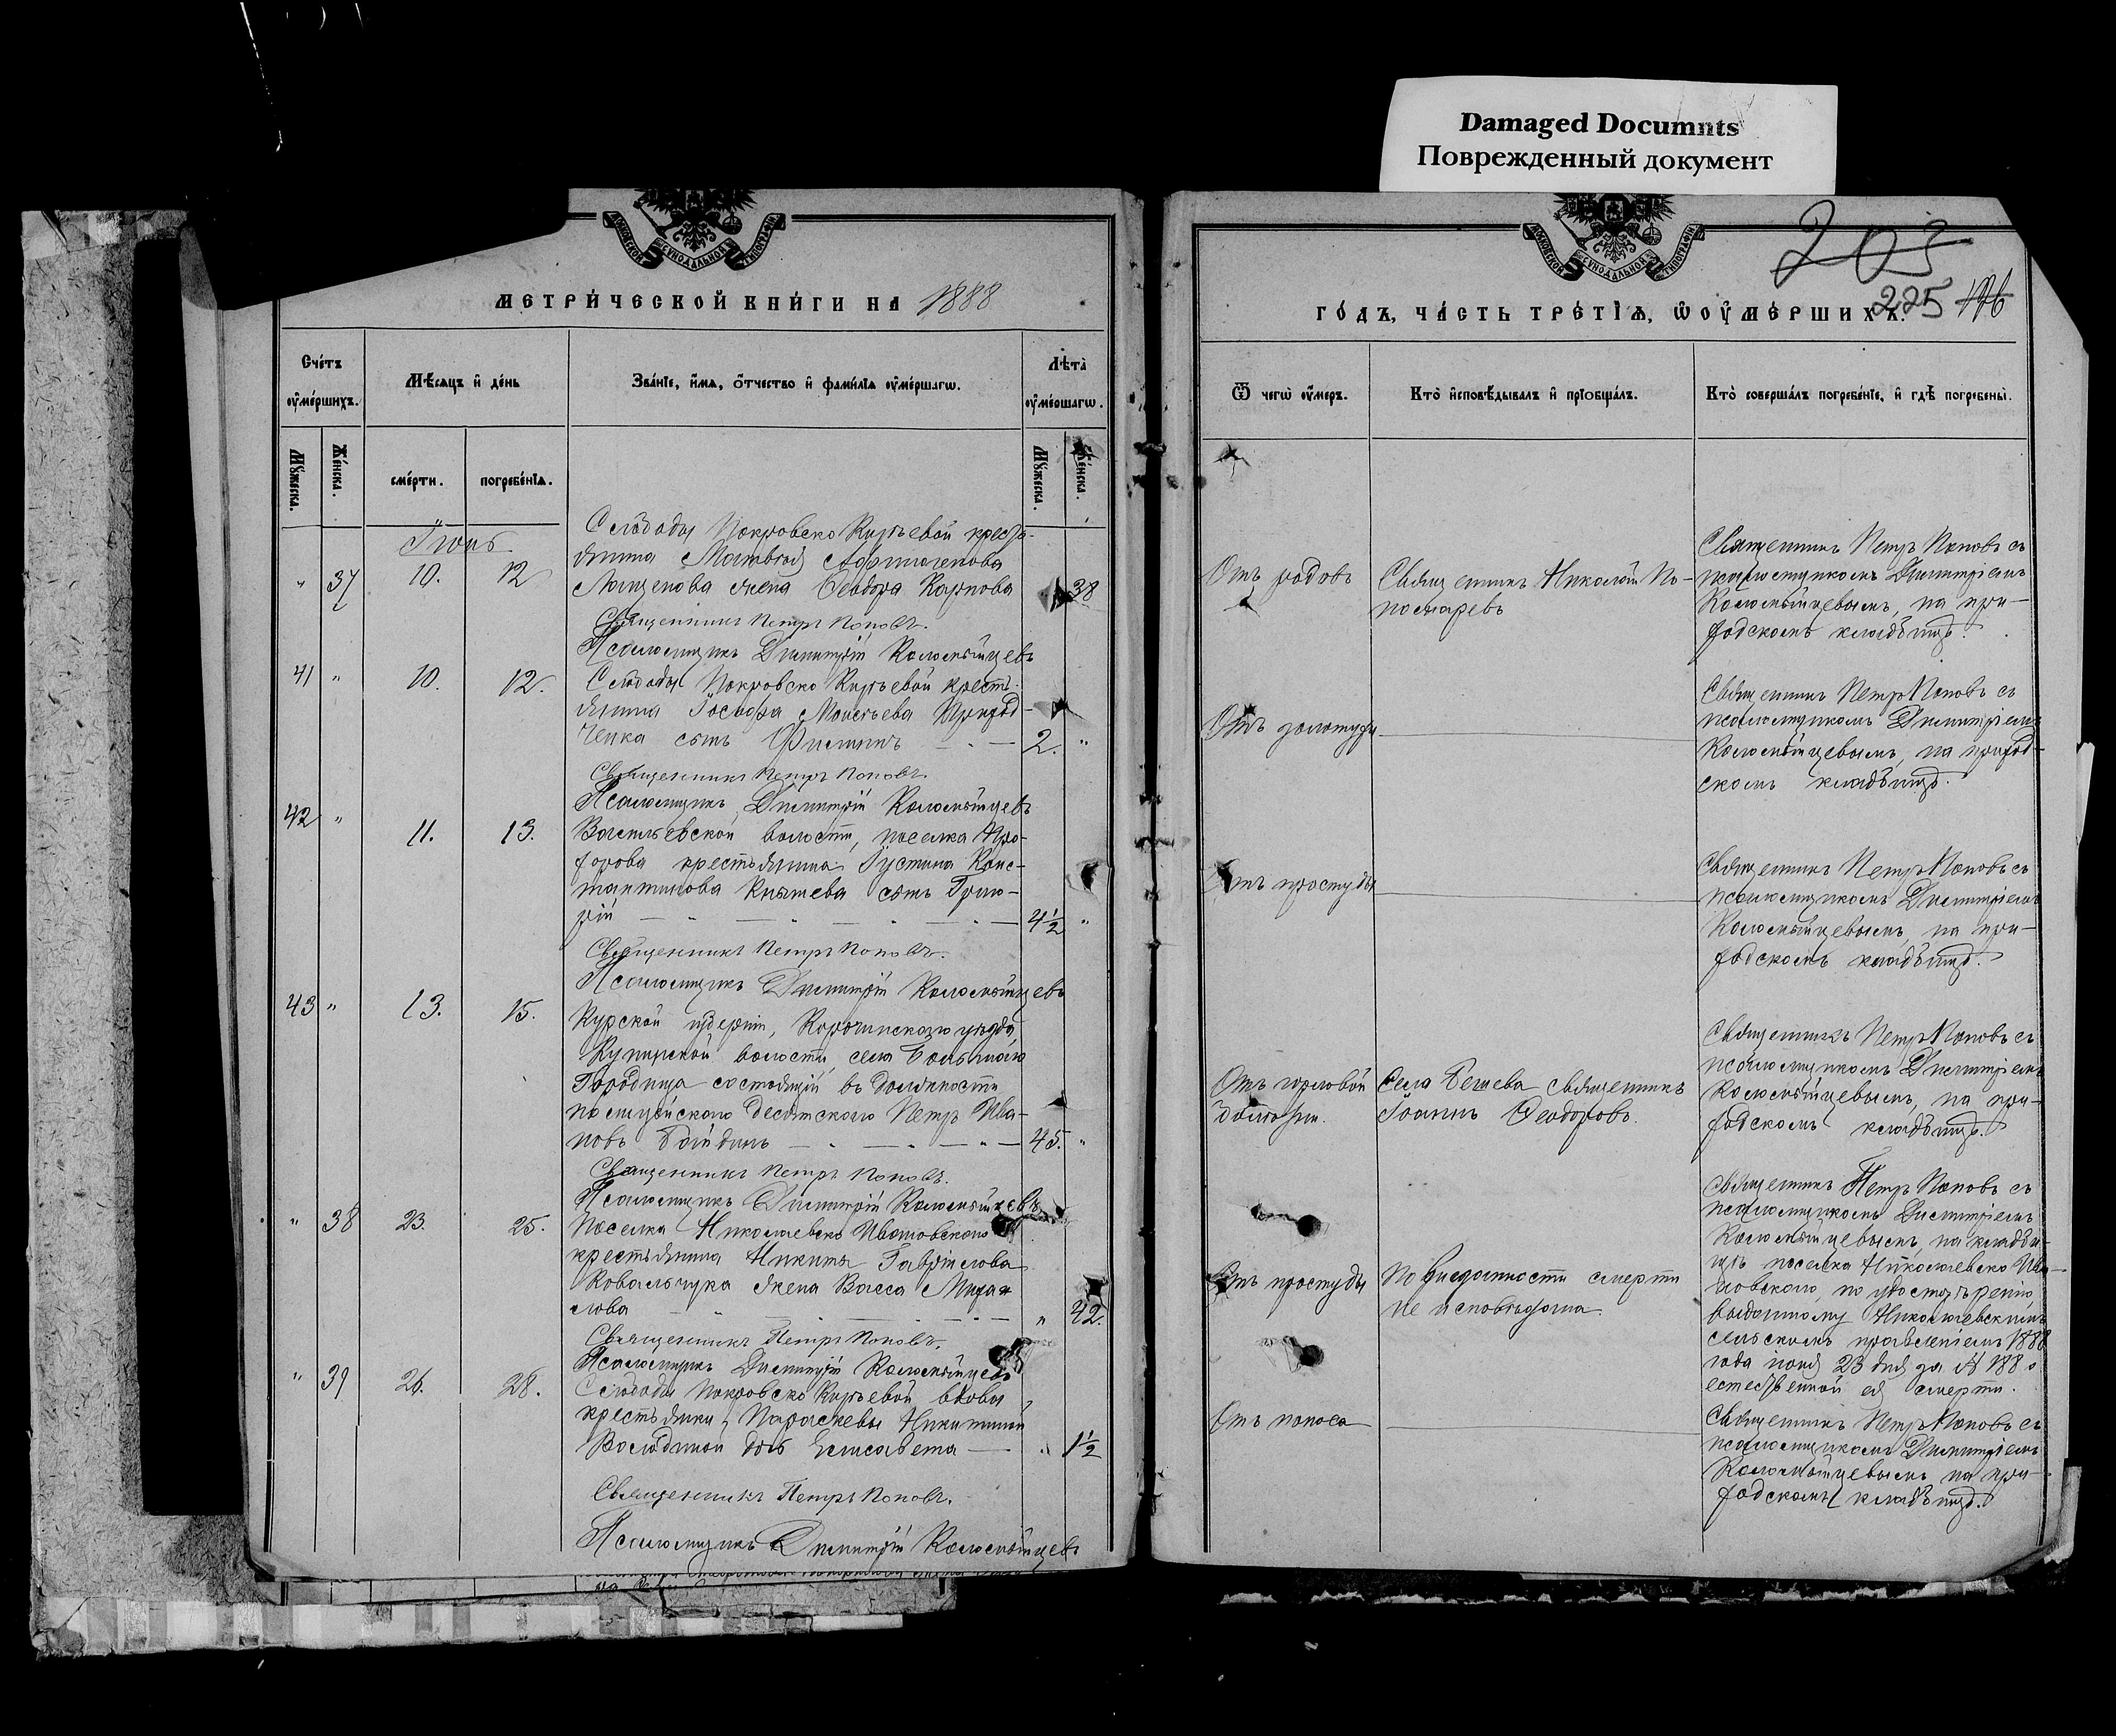 Damaged Documnts
Поврежденный документ
МОСКОВСКОЙ СѴНОДАЛЬНОЙ ТИПОГРАФІИ
МЕТРИ́ЧЕСКОЙ КНИ́ГИ НА 1888
Сче́тъ оу҆ме́ршихъ.
Мѣ́сяцъ и҆ де́нь
Зва́нїе, и҆́мя, ѻ҆́тчество и҆ фами́лїя оу҆ме́ршагѡ.
Лѣта̀ оу҆ме́ршагѡ.
Мꙋ́жеска.
Же́нска.
сме́рти.
погребе́нїѧ.
Мꙋ́жеска.
Же́нска.
Іюнь
Слободы Покровско Киреевой крестья-
нина Матвѣя
" 37 10. 12 Лященова жена Ѳеодора Карпова 38
Священникъ Петръ Поповъ.
Псаломщикъ Димитрій Коломыйцевъ
41 " 10. 12. Слободы Покровско Киреевой кресть-
янина Іосифа Моисеева Приход-
ченка сынъ Филиппъ 2. "
Священникъ Петръ Поповъ.
Псаломщикъ Димитрій Коломыйцевъ
42 " 11. 13. Васильевской волости, поселка Про-
хорова крестьянина Іустина Конс-
тантинова сынъ Григо-
рій 4½ "
Священникъ Петръ Поповъ.
Псаломщикъ Димитрій Коломыйцевъ
43 " 13. 15. Курской губерніи, Корочинскаго уѣзда
волости, села Большаго
Городища состоящій въ должности
полицейскаго десятскаго Петръ Ива-
новъ 45. "
Священникъ Петръ Поповъ.
Псаломщикъ Димитрій Коломыйцевъ
" 38 23. 25. Поселка Николаевско Ивановскаго
крестьянина Никиты Гавріилова
Ковальчука жена Васса Михай-
лова " 42.
Священникъ Петръ Поповъ.
Псаломщикъ Димитрій Коломыйцевъ
" 39 26. 28. Слободы Покровско Киреевой вдовы
крестьянки Параскевы Никитиной
дочь Елисавета " 1½
Священникъ Петръ Поповъ.
Псаломщикъ Димитрій Коломыйцевъ
МОСКОВСКОЙ СѴНОДАЛЬНОЙ ТИПОГРАФІИ
203
225 196
ГО́ДЪ, ЧА́СТЬ ТРЕ́ТЇѦ, Ѡ҆ ОУ҆МЕ́РШИХЪ.
Ѿ чегѡ̀ оу҆́меръ.
Кто̀ и҆сповѣ́дывалъ и҆ прїобща́лъ.
Кто̀ соверша́лъ погребе́нїе, и҆ гдѣ̀ погребены̀.
Отъ родовъ
Священникъ Николай По-
номаревъ
Священникъ Петръ Поповъ съ
псаломщикомъ Димитріемъ
Коломыйцевымъ, на при-
ходскомъ кладбищѣ.
Отъ золотухи
Священникъ Петръ Поповъ съ
псаломщикомъ Димитріемъ
Коломыйцевымъ, на приход-
скомъ кладбищѣ.
Отъ простуды
Священникъ Петръ Поповъ съ
псаломщикомъ Димитріемъ
Коломыйцевымъ, на при-
ходскомъ кладбищѣ.
Отъ горловой
болѣзни.
Села Бешева священникъ
Іоаннъ Ѳеодоровъ.
Священникъ Петръ Поповъ съ
псаломщикомъ Димитріемъ
Коломыйцевымъ, на при-
ходскомъ кладбищѣ.
Отъ простуды
По внезапности смерти
не исповѣдана
Священникъ Петръ Поповъ съ
псаломщикомъ Димитріемъ
Коломыйцевымъ, на кладби-
щѣ поселка Николаевско Ива-
новскаго, по удостовѣренію
выданному Николаевскимъ
сельскимъ правленіемъ 1888
года іюня 23 дня за № 188 о
естественной ея смерти.
Отъ поноса
Священникъ Петръ Поповъ съ
псаломщикомъ Димитріемъ
Коломыйцевымъ на при-
ходскомъ кладбищѣ.